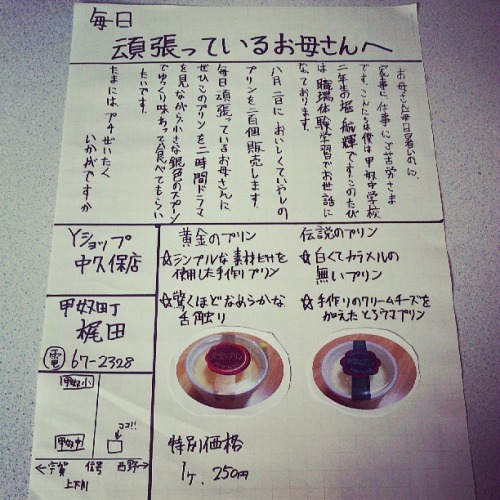 毎日
頑張っているお母さんへ
お母さん毎日暑いのに、
家事に仕事にご苦労さま
です。こんにちは僕は甲奴中学校
二年生の堀 航輝です。このたび
は職場体験学習でお世話に
なっております。
八月二日に おいしくていやしの
プリンを二百個販売します。
毎日頑張っているお母さんに
ぜひこのプリンを二時間ドラマ
を見ながら小さな銀色のスプーン
でゆっくり味わって食べてもらい
たいです。
たまにはプチぜいたく
いかがですか
Yショップ
中久保店
甲奴町
梶田
電 67-2328
甲奴小
甲奴中
ココ!!
←宇賀 信号 西野→
上下川
黄金のプリン
☆シンプルな素材だけを
使用した手作りプリン
☆驚くほどなめらかな
舌触り
伝説のプリン
☆白くてカラメルの
無いプリン
☆手作りのクリームチーズを
加えたとろウマプリン
特別価格
1ヶ 250円